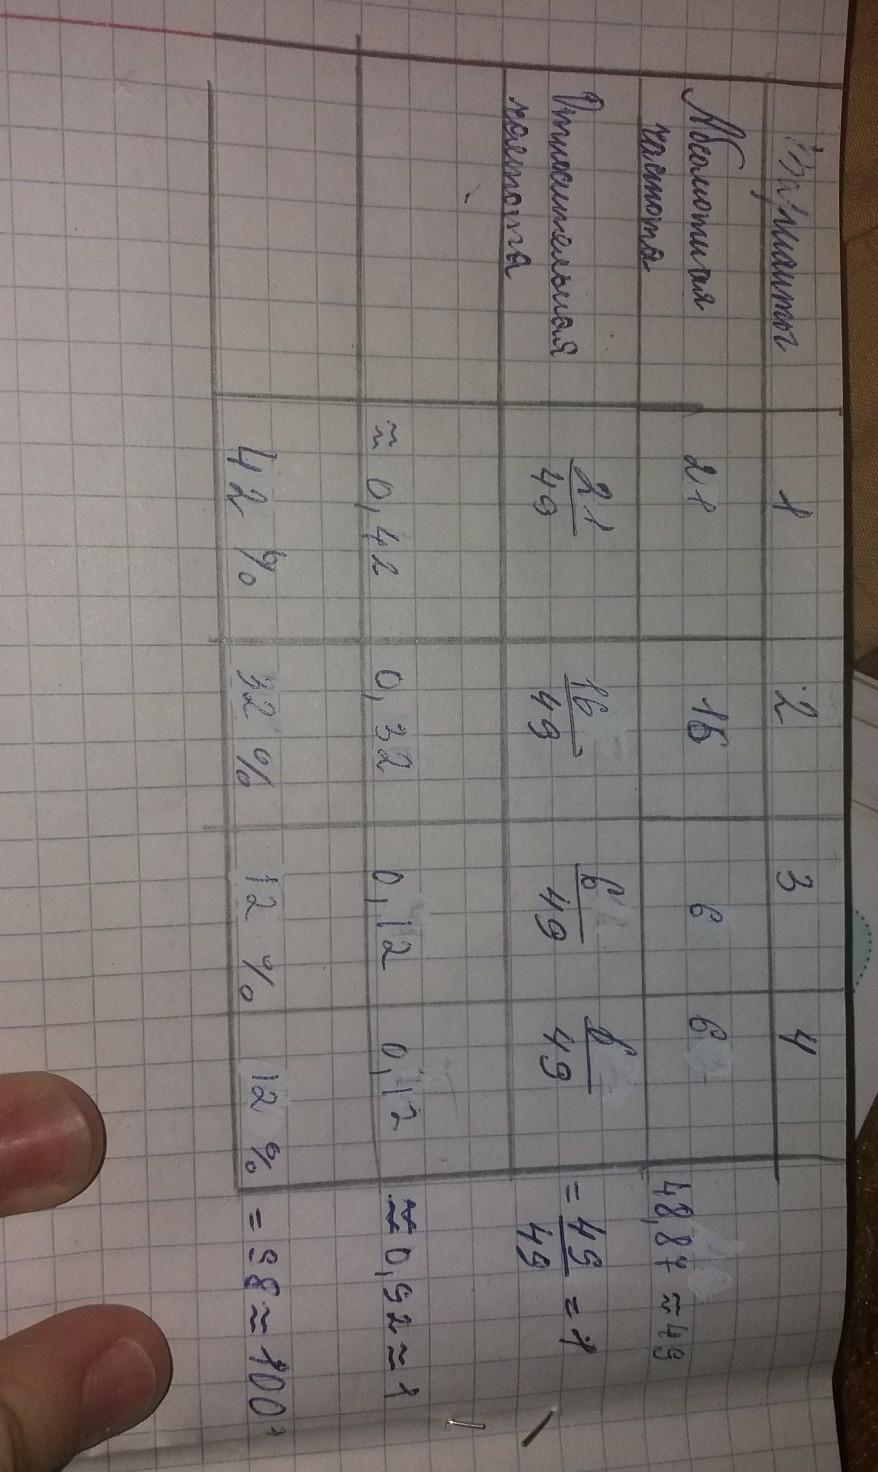 Варианты 1 2 3 4
Абсолютная частота 21 16 6 6 48,87 ≈ 49
Относительная частота 21/49 16/49 6/49 6/49 = 49/49 = 1
≈ 0,42 0,32 0,12 0,12 ≈ 0,92 ≈ 1
42 % 32 % 12 % 12 % = 98 ≈ 100